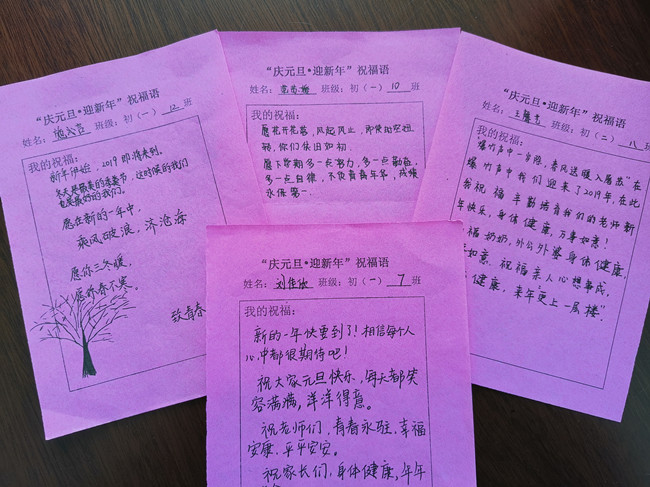 “庆元旦•迎新年”祝福语
姓名： 班级：初（一）12 班
我的祝福：
新年伊始，2019即将来到。
冬天是最美的季节，这时候的我们
也是最好的我们。
愿在新的一年中，
乘风破浪，济沧海
愿你三冬暖，
愿你春不寒。
致青春
“庆元旦•迎新年”祝福语
姓名： 班级：初（一）10 班
我的祝福：
愿花开花落，风起风止，即使如空短
你们依旧如初
愿下学期多一点努力，多一点勤奋，
多一点自律，不负青春年华，成绩
永保第一。
“庆元旦•迎新年”祝福语
姓名： 班级：初（二）八班
我的祝福：
“爆竹声中一岁除，春风送暖入屠苏”在
爆竹声中我们迎来了2019年，在此
我祝福辛勤培育我们的老师新
年快乐，身体健康，万事如意！
福奶奶，外公外婆身体健康，
如意。祝福亲人心想事成，
健康，来年“更上一层楼”。
“庆元旦•迎新年”祝福语
姓名：刘佳 班级：初（一）7 班
我的祝福：
新的一年快要到了！相信每个人
心中都很期待吧！
祝大家元旦快乐，每天都笑
容满满，洋洋得意。
祝老师们，青春永驻，幸福
安康，平平安安。
祝家长们，身体健康，年年